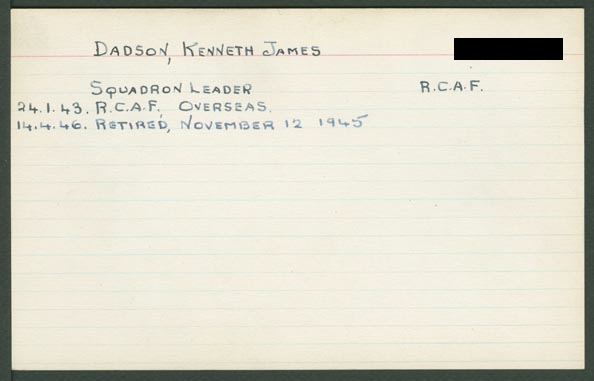 Dadson, Kenneth James
Squadron Leader R.C.A.F.
24.1.43. R.C.A.F. Overseas.
14.4.46. Retired, November 12 1945